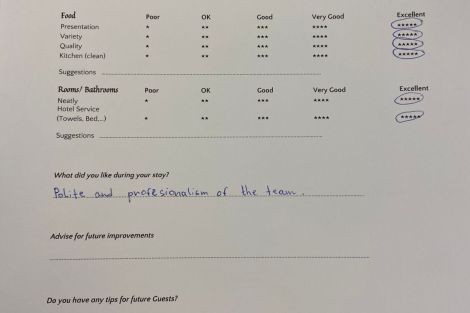 Food Poor OK Good Very Good Excellent
Presentation * ** *** **** *****
Variety * ** *** **** *****
Quality * ** *** **** *****
Kitchen (clean) * ** *** **** *****
Suggestions
Rooms/ Bathrooms Poor OK Good Very Good Excellent
Neatly * ** *** **** *****
Hotel Service
(Towels, Bed...) * ** *** **** *****
Suggestions
What did you like during your stay?
Polite and profesionalism of the team.
Advise for future improvements
Do you have any tips for future Guests?